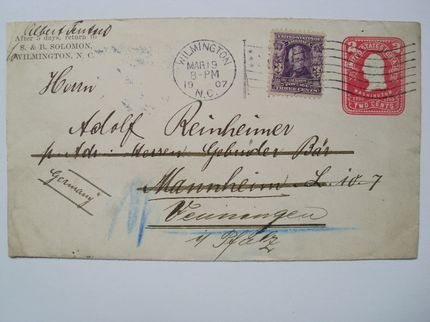 Albert
After 5 days, return to
S. & B. SOLOMON,
WILMINGTON, N. C.
WILMINGTON
MAR 19
8-PM
1907
N.C.
THREE CENTS
UNITED STATES
WASHINGTON
TWO CENTS
Herrn
Adolf Reinheimer
p. Adr. Herren Gebrüder Bär
Mannheim L. 10. 7
Germany
Venningen
i/ Pfalz